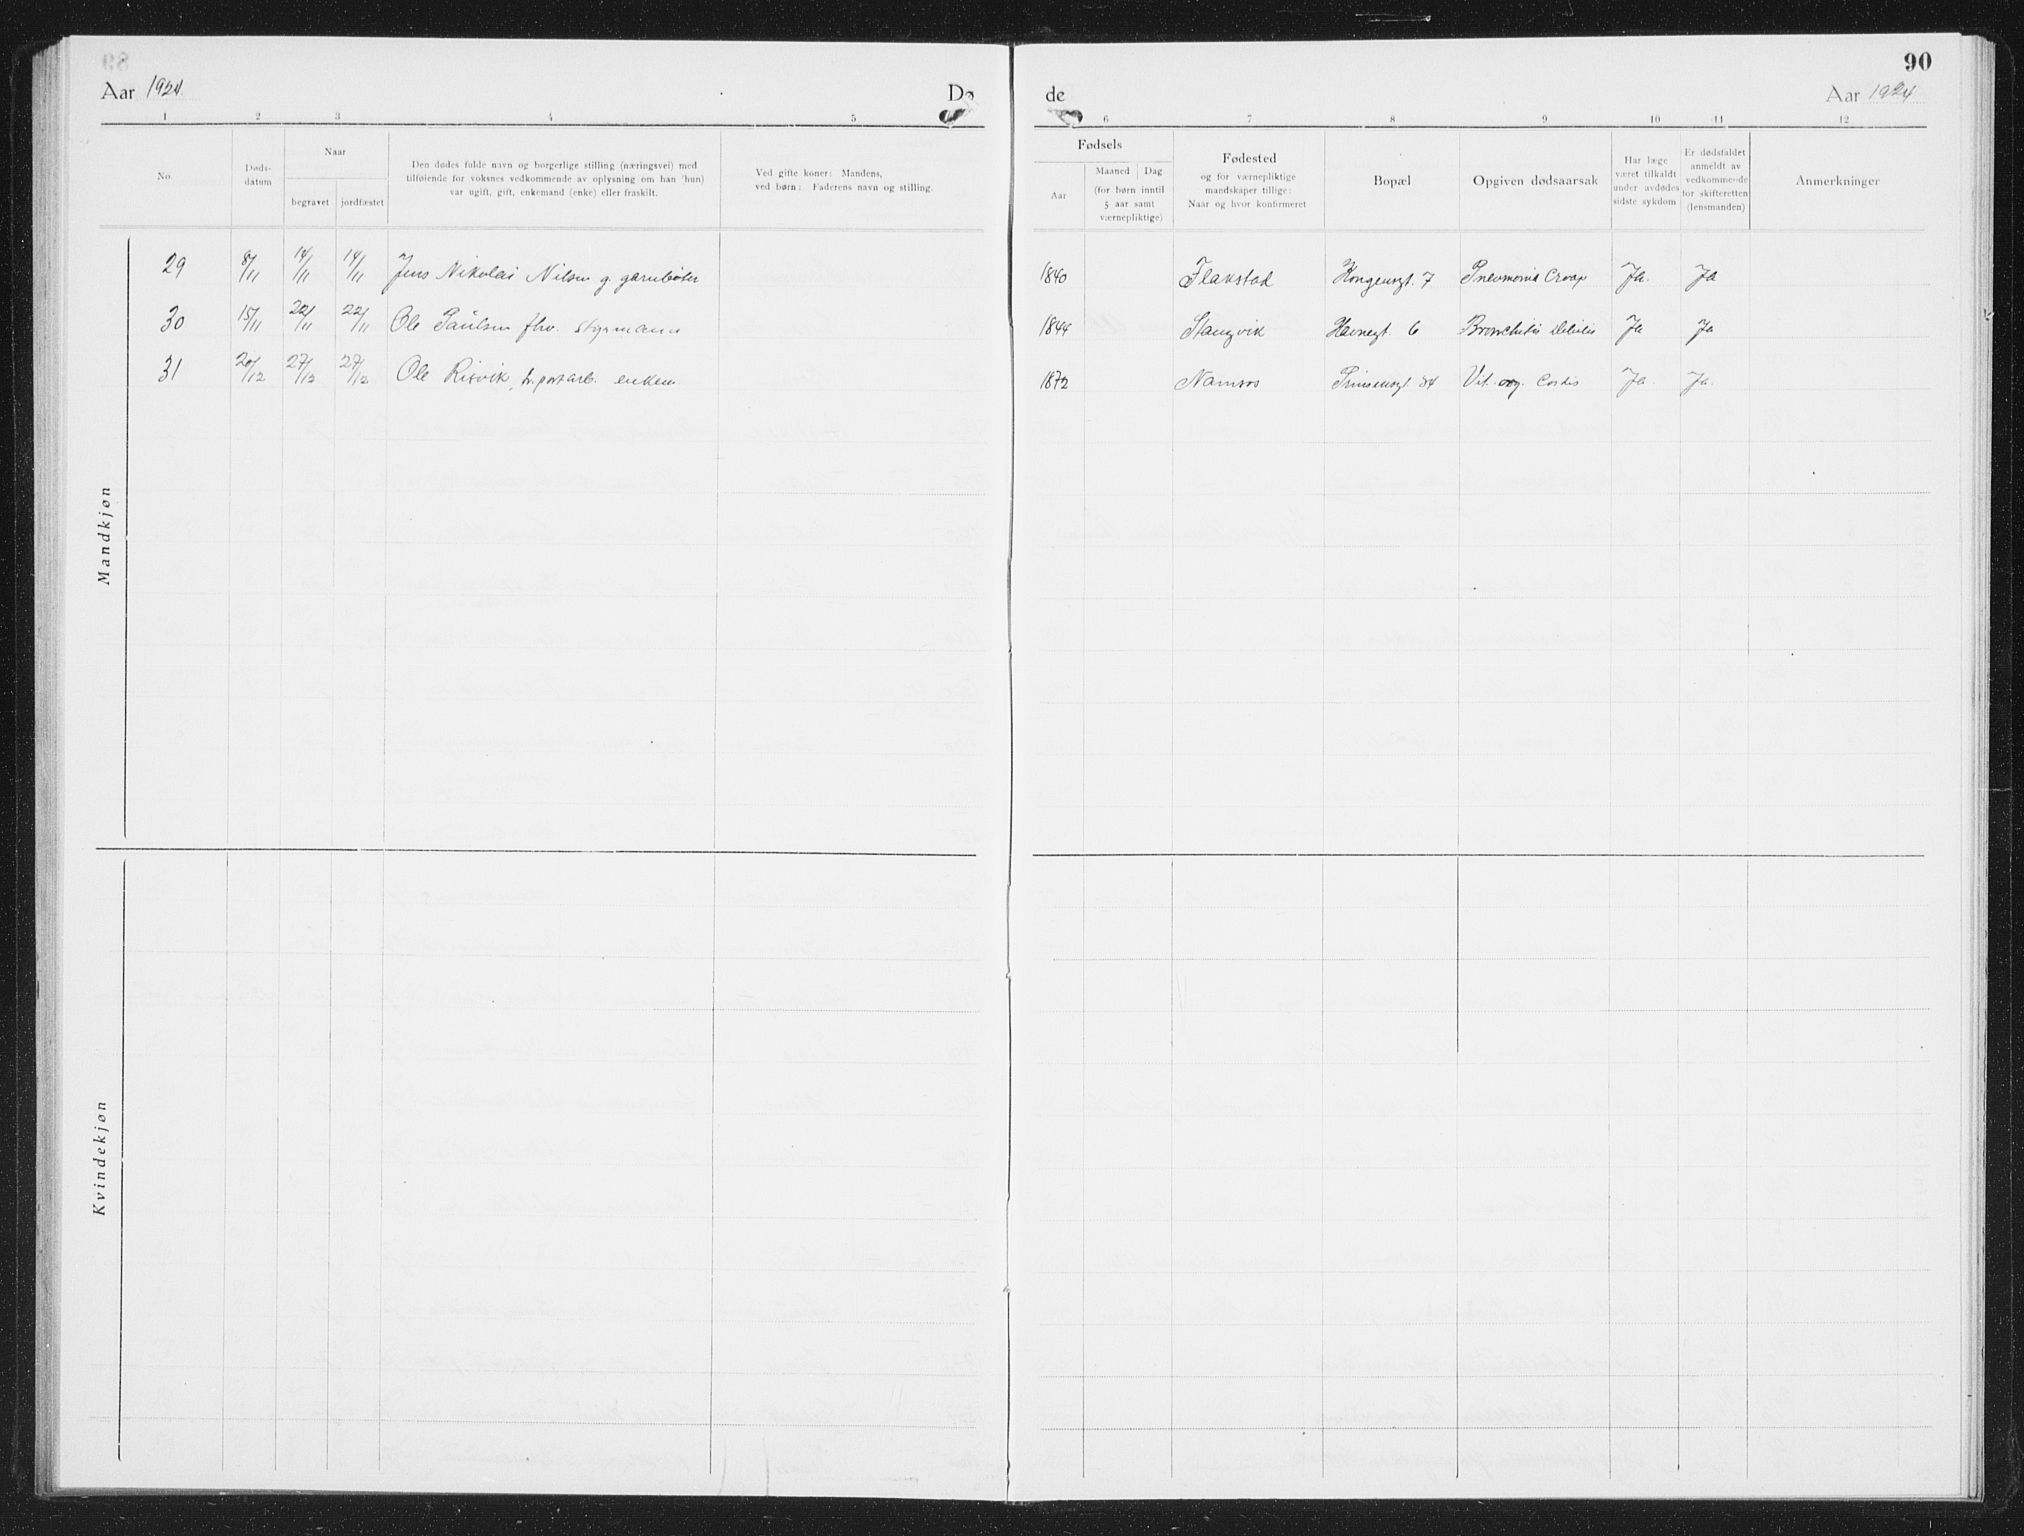 90
Aar 1924 Dø de Aar 1924
1 2 3 4 5 6 7 8 9 10 11 12
No.
Døds-
datum
Naar
begravet jordfæstet
Den dødes fulde navn og borgerlige stilling (næringsvei) med
tilføiende for voksnes vedkommende av oplysning om han (hun)
var ugift, gift, enkemand (enke) eller fraskilt.
Ved gifte koner: Mandens,
ved børn: Faderens navn og stilling.
Fødsels
Aar
Maaned Dag
(for børn inntil
5 aar samt
værnepliktige)
Fødested
og for værnepliktige
mandskaper tillige:
Naar og hvor konfirmeret
Bopæl
Opgiven dødsaarsak
Har læge
været tilkaldt
under avdødes
sidste sykdom
Er dødsfaldet
anmeldt av
vedkommende
for skifteretten
(lensmanden)
Anmerkninger
Mandkjøn
29 8/11 14/11 14/11 Jens Nikolai Nilsen g. garnbøter 1840 Flakstad Kongensgt. 7 Pneumonia Croup Ja. Ja
30 15/11 22/11 22/11 Ole Paulsen fhv. styrmann 1844 Stangvik Havnegt. 6 Bronchitis Ja Ja
31 20/12 27/12 27/12 Ole Risvik, enkem. 1872 Namsos Prinsensgt 34 Vit. org. Cordis Ja. Ja.
Kvindekjøn